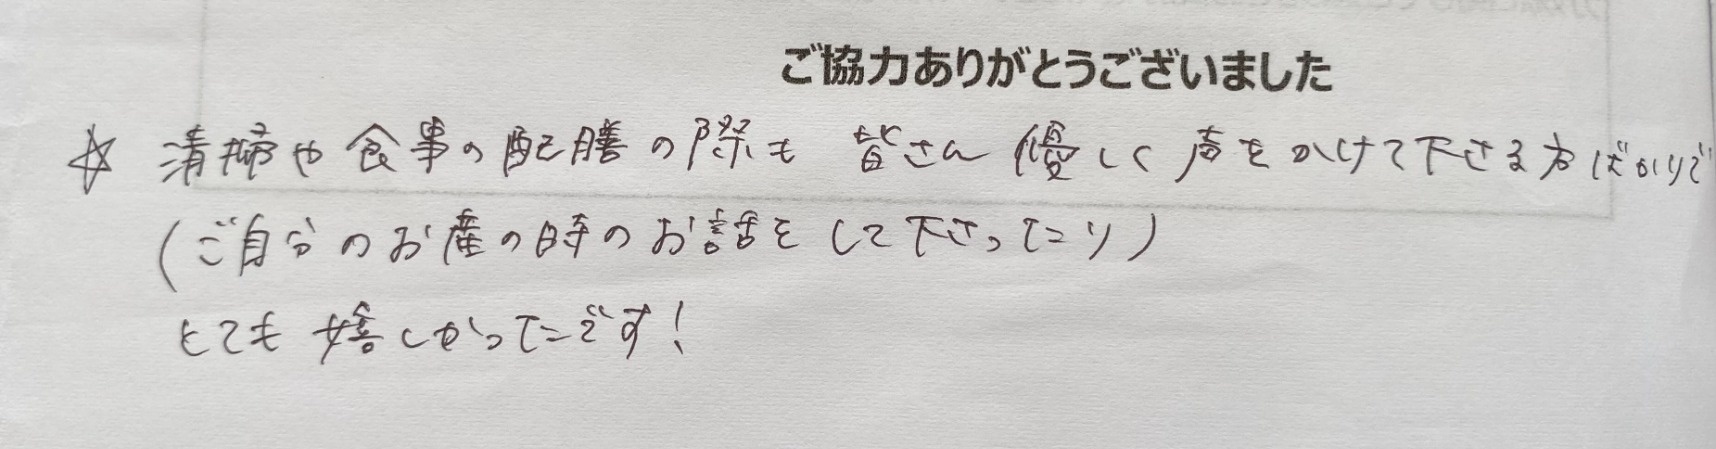 ご協力ありがとうございました
☆ 清掃や食事の配膳の際も 皆さん 優しく声をかけて下さる方ばかりで
(ご自分のお産の時のお話をして下さったり)
とても嬉しかったです!